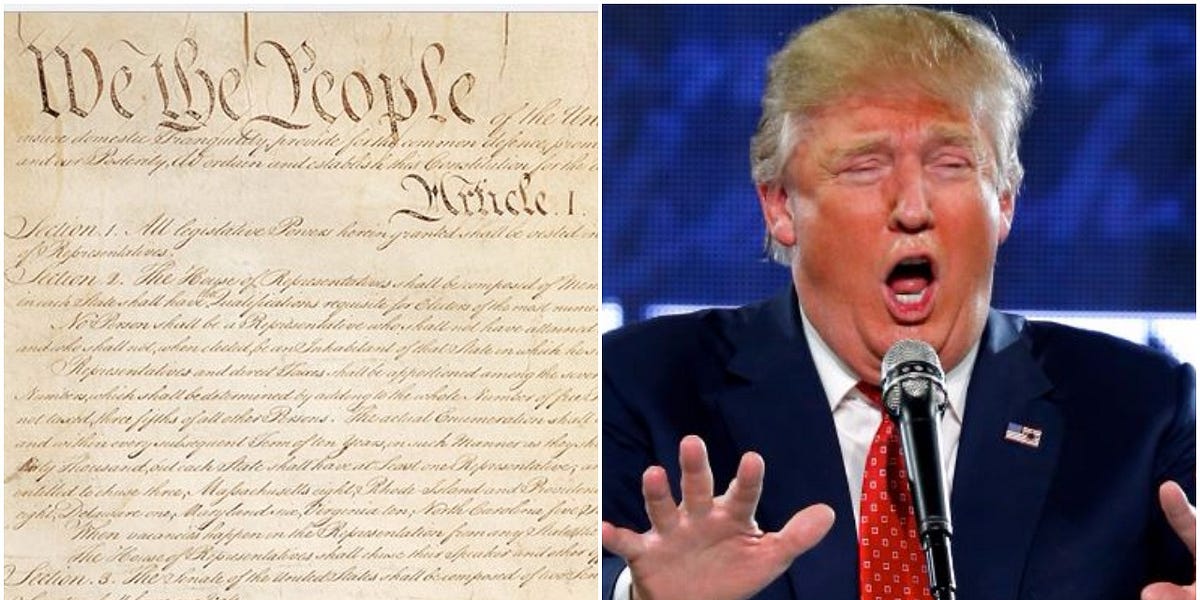 We the People of the Un
insure domestic Tranquility, provide for the common defence, prom
and our Posterity, do ordain and establish this Constitution for the
Article. I.
Section. 1. All legislative Powers herein granted shall be vested in
of Representatives.
Section. 2. The House of Representatives shall be composed of Mem
in each State shall have Qualifications requisite for Electors of the most nume
No Person shall be a Representative who shall not have attained
and who shall not, when elected, be an Inhabitant of that State in which he s
Representatives and direct Taxes shall be apportioned among the seve
Numbers, which shall be determined by adding to the whole Number of free
not taxed, three fifths of all other Persons. The actual Enumeration shall
and within every subsequent Term of ten Years, in such Manner as they sh
thirty Thousand, but each State shall have at Least one Representative;
entitled to chuse three, Massachusetts eight, Rhode Island and Providen
eight, Delaware one, Maryland six, Virginia ten, North Carolina five, S
When vacancies happen in the Representation from any State,
the House of Representatives shall chuse their Speaker and other
Section. 3. The Senate of the United States shall be composed of two Sen